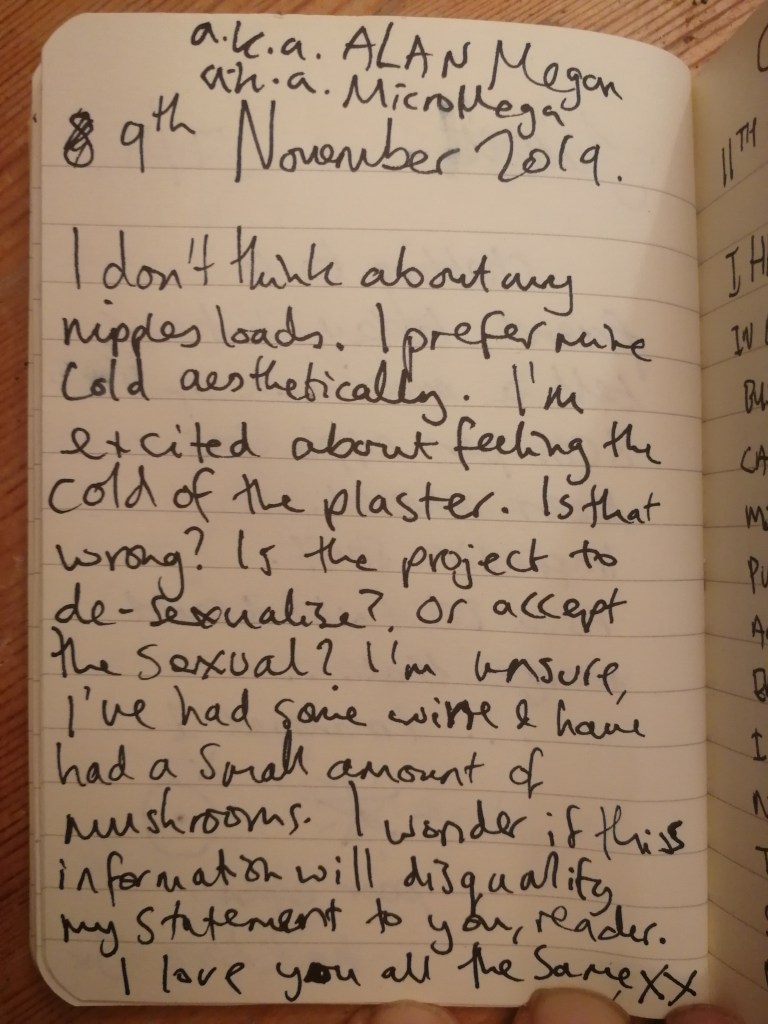 a.k.a. ALAN Megan
a.k.a. MicroMega
9th November 2019.
I don't think about my
nipples loads. I prefer mine
cold aesthetically. I'm
excited about feeling the
cold of the plaster. Is that
wrong? Is the project to
de-sexualise? Or accept
the sexual? I'm unsure,
I've had some wine & have
had a small amount of
mushrooms. I wonder if this
information will disqualify
my statement to you, reader.
I love you all the same, xx
11TH
I H
IN
CA